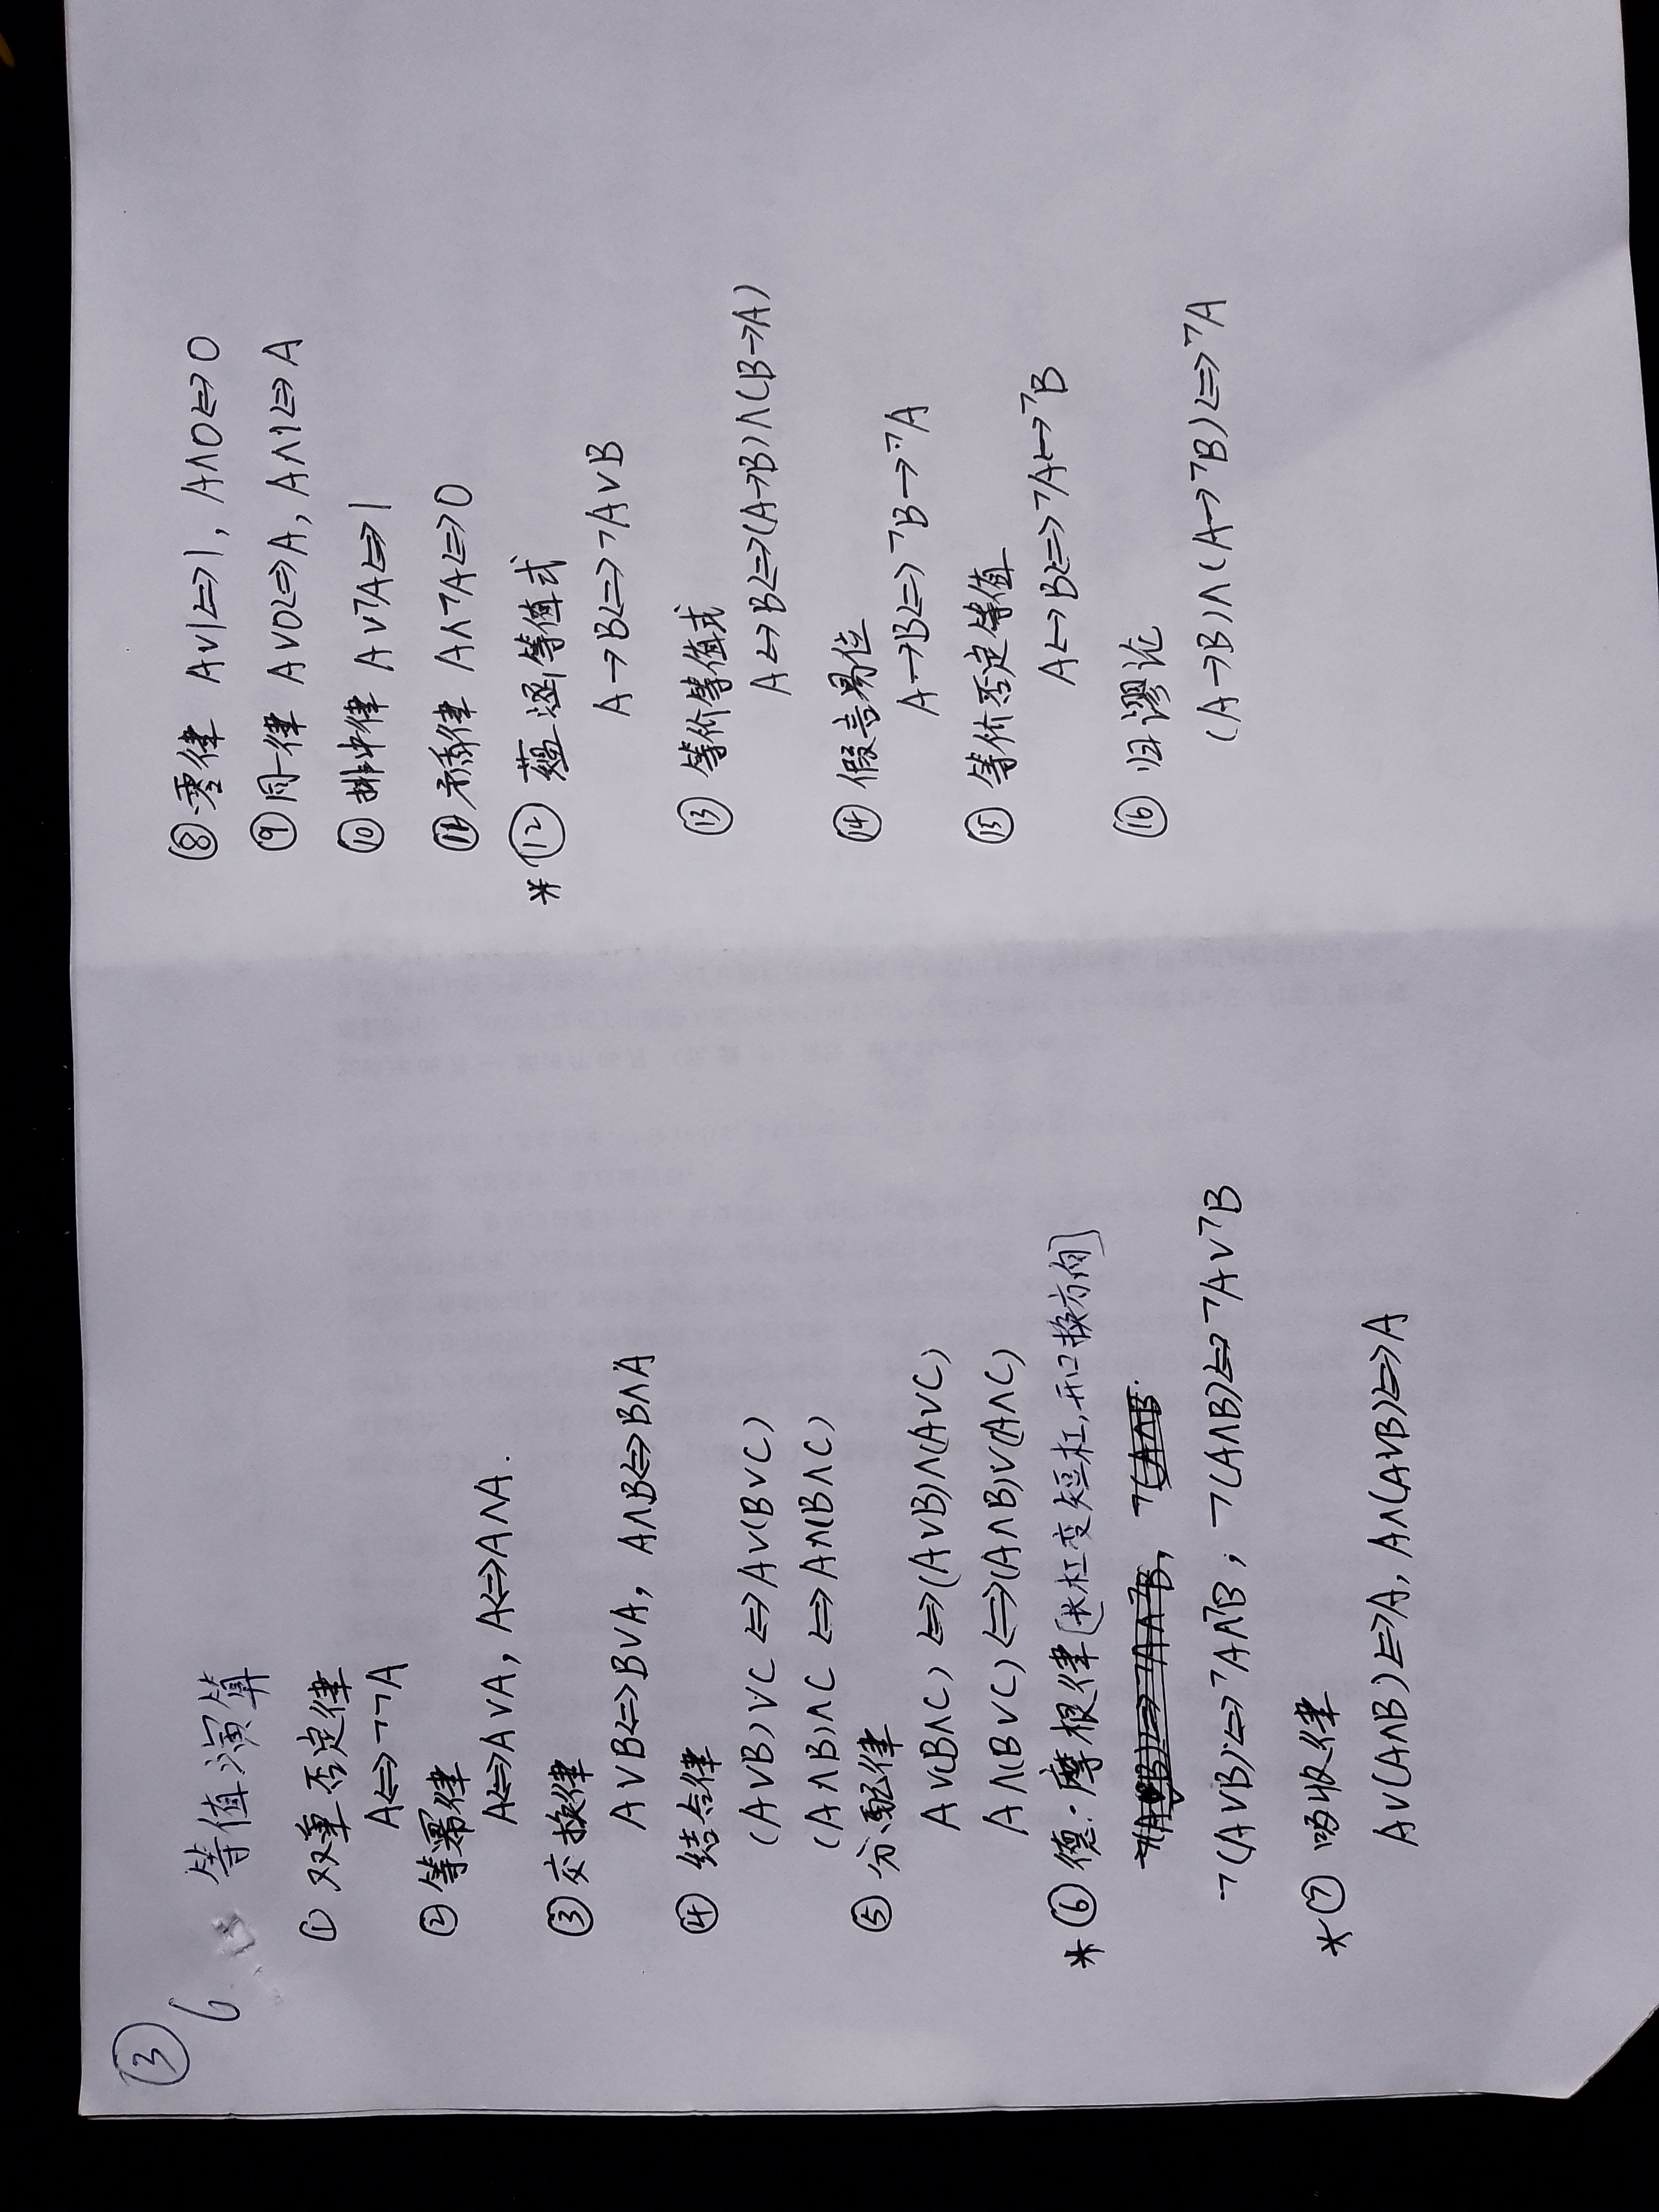 ③
6
等值演算
① 双重否定律
A⇔¬¬A
② 等幂律
A⇔A∨A, A⇔A∧A.
③ 交换律
A∨B⇔B∨A, A∧B⇔B∧A
④ 结合律
(A∨B)∨C ⇔A∨(B∨C)
(A∧B)∧C ⇔A∧(B∧C)
⑤ 分配律
A∨(B∧C) ⇔(A∨B)∧(A∨C)
A∧(B∨C)⇔(A∧B)∨(A∧C)
* ⑥ 德·摩根律[长杠变短杠,开口换方向]
¬(A∨B)⇔¬A∧¬B, ¬(A∧B
¬(A∨B)⇔¬A∧¬B, ¬(A∧B)⇔¬A∨¬B
* ⑦ 吸收律
A∨(A∧B)⇔A, A∧(A∨B)⇔A
⑧ 零律 A∨1⇔1, A∧0⇔0
⑨ 同一律 A∨0⇔A, A∧1⇔A
⑩ 排中律 A∨¬A⇔1
⑪ 矛盾律 A∧¬A⇔0
* ⑫ 蕴涵等值式
A→B⇔¬A∨B
⑬ 等价等值式
A↔B⇔(A→B)∧(B→A)
⑭ 假言易位
A→B⇔¬B→¬A
⑮ 等价否定等值
A↔B⇔¬A↔¬B
⑯ 归谬论
(A→B)∧(A→¬B)⇔¬A